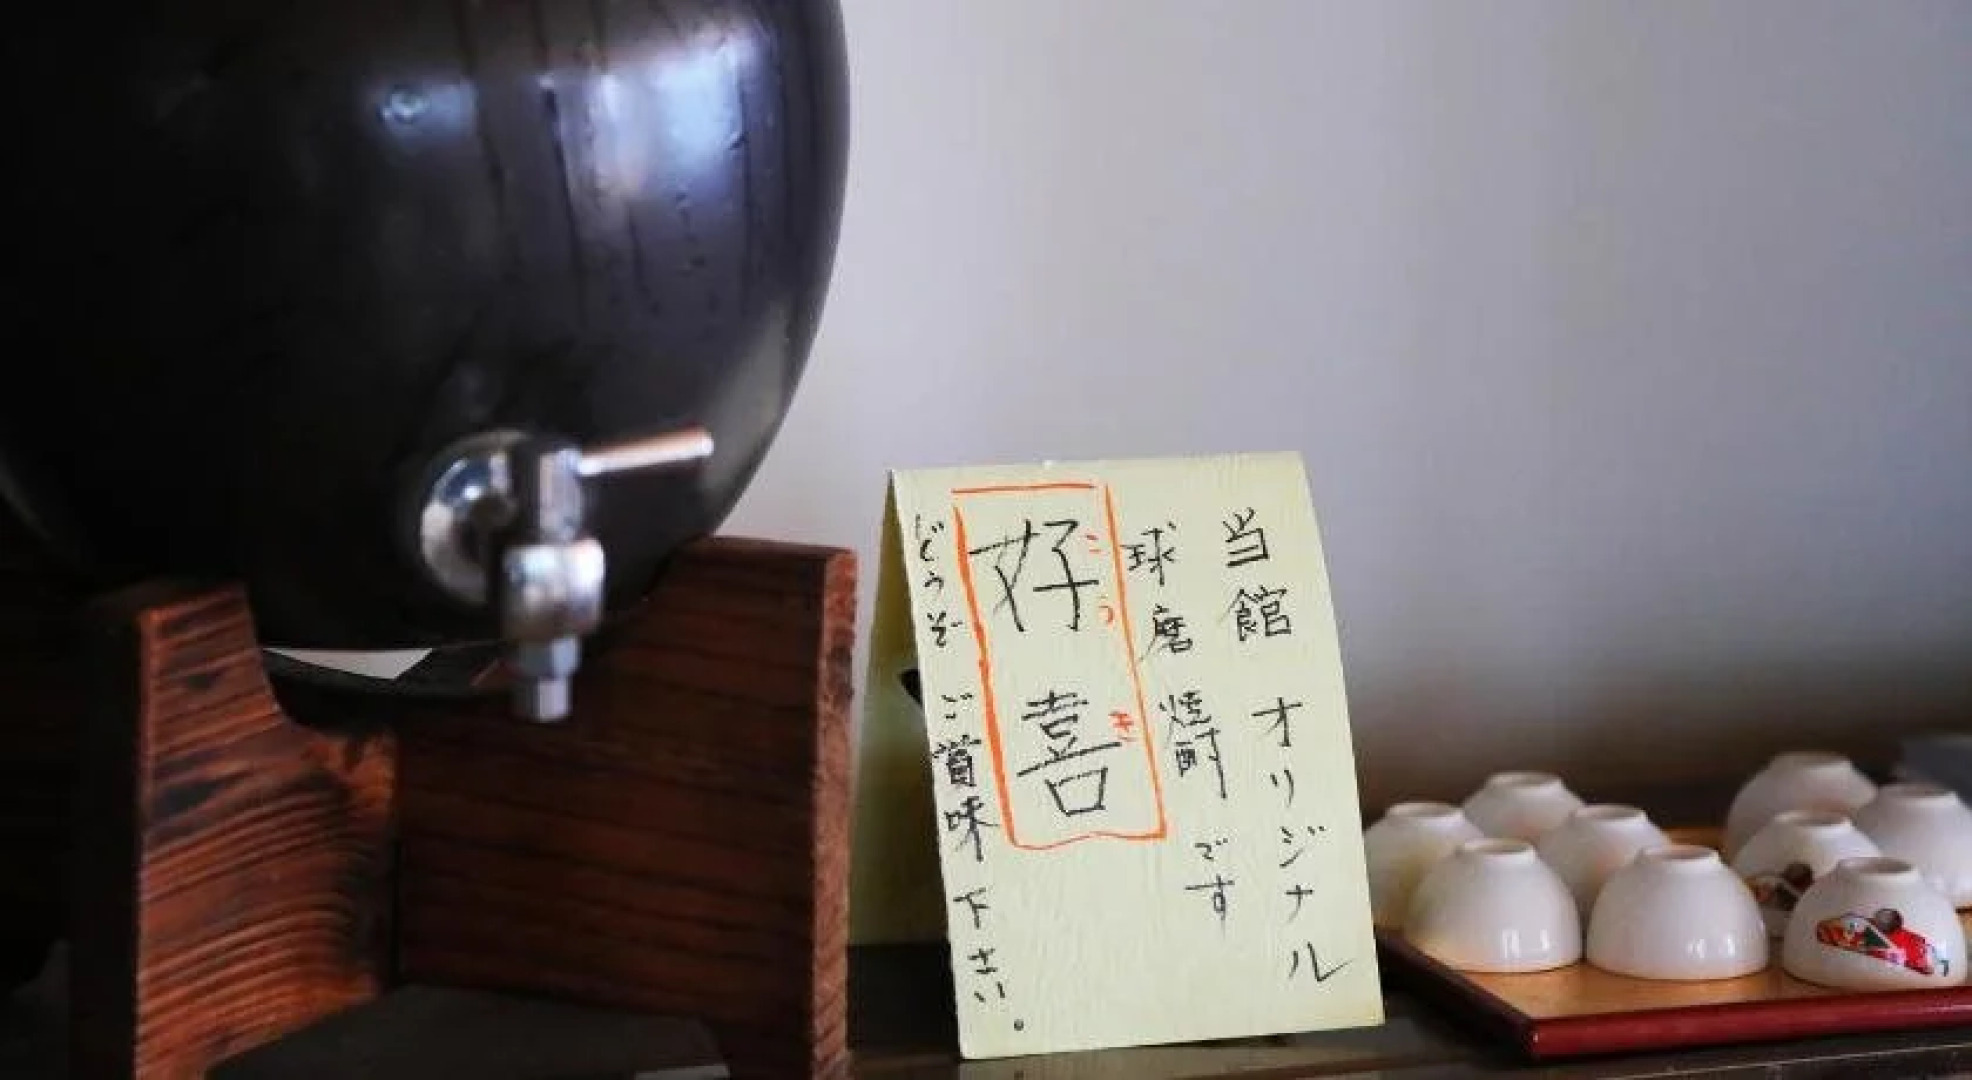 当館 オリジナル
球磨 焼酎 です
好喜
こうき
どうぞ ご賞味 下さい。